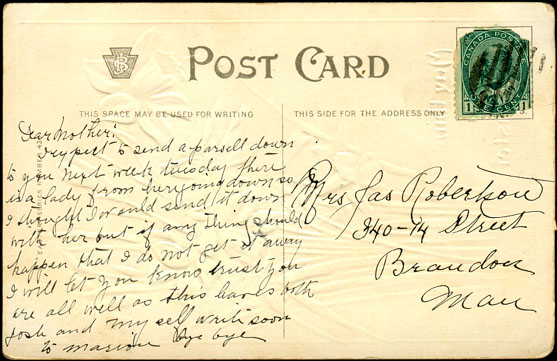 POST CARD
CANADA POSTAGE
1 1
THIS SPACE MAY BE USED FOR WRITING
THIS SIDE FOR THE ADDRESS ONLY
Dear Mother:
I expect to send a parsell down
to you next week tuesday there
is a lady from here going down so
I thought I would send it down
with her but if any thing should
happen that I do not get it away
I will let you know trust you
are all well as this leaves both
Josh and my self write soon
to marion bye bye
Mrs Jas Robertson
340-14 Street
Brandon
Man